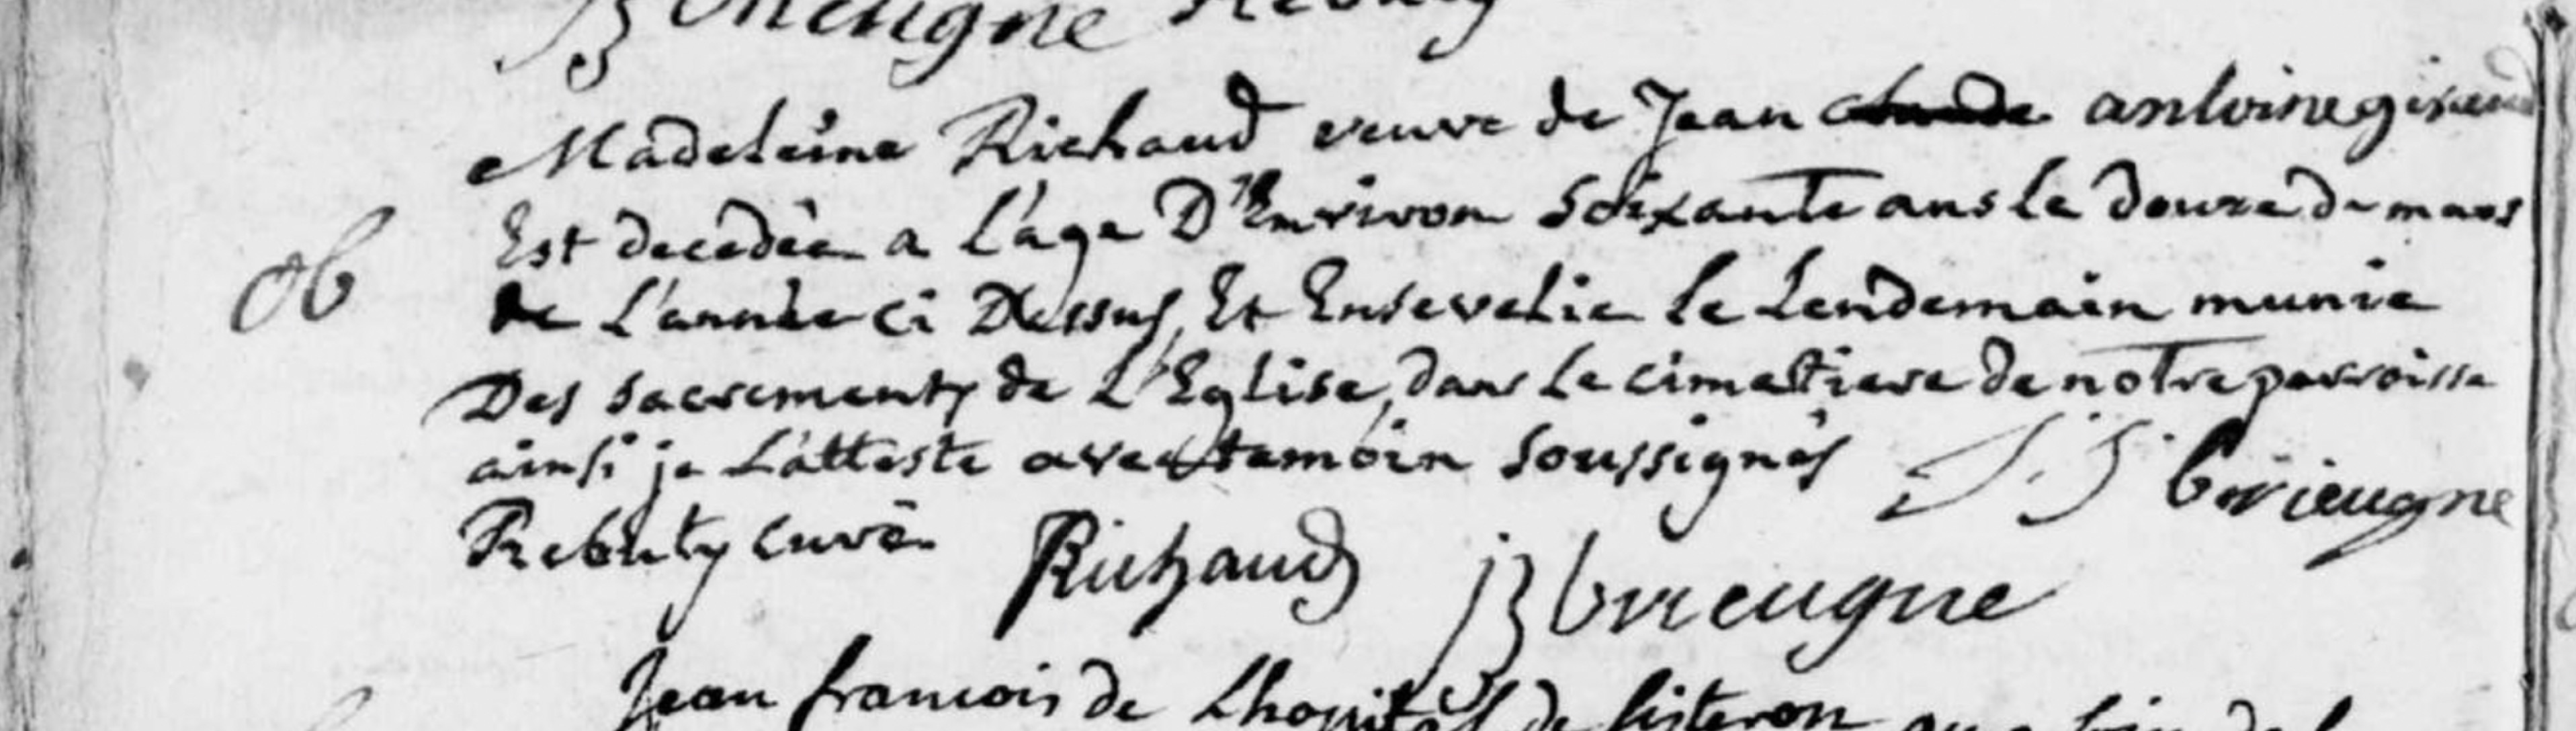 Madeleine Richaud veuve de Jean antoine giraud
ob
Est decedée a L'age D'Environ Soixante ans le douze de mars
de L'année ci Dessus, Et Ensevelie le Lendemain munie
Des sacrements de L'Eglise, dans Le cimetiere de notre parroisse
ainsi je L'atteste avec temoin soussignés
Rebuty curé Richaud
Jean francois de Lhopital de sisteron